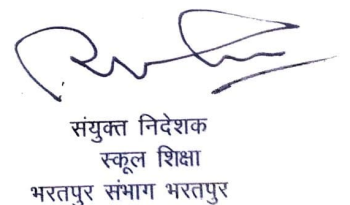 संयुक्त निदेशक
स्कूल शिक्षा
भरतपुर संभाग भरतपुर